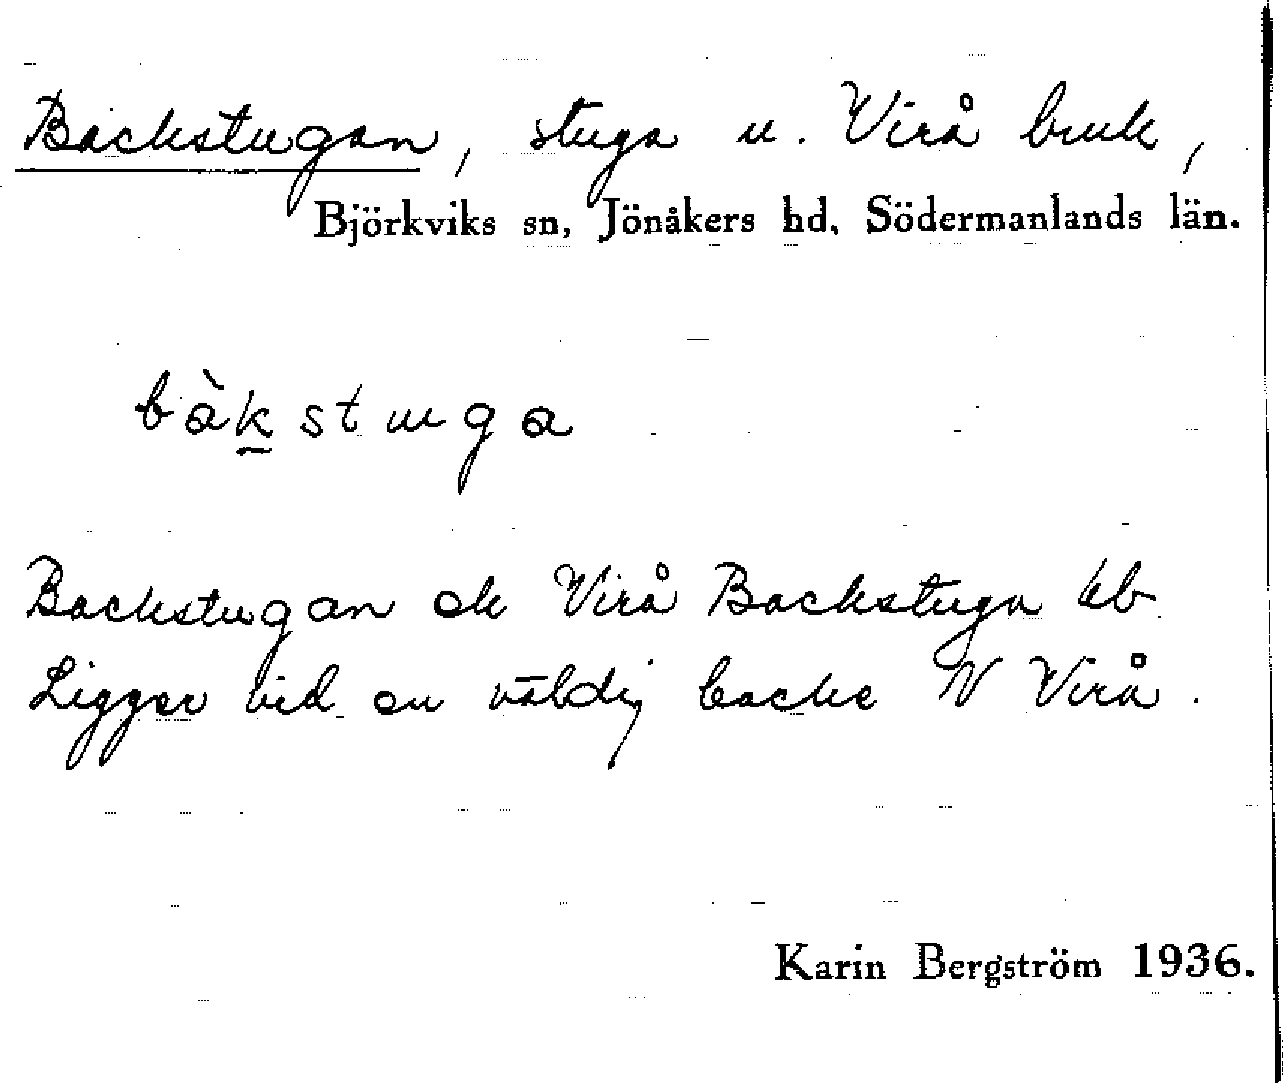 Backstugan, stuga u. Virå bruk,
Björkviks sn, Jönåkers hd, Södermanlands län.
bàk̲stuga
Backstugan ek Virå Backstuga kb
Ligger vid en väldig backe N Virå.
Karin Bergström 1936.